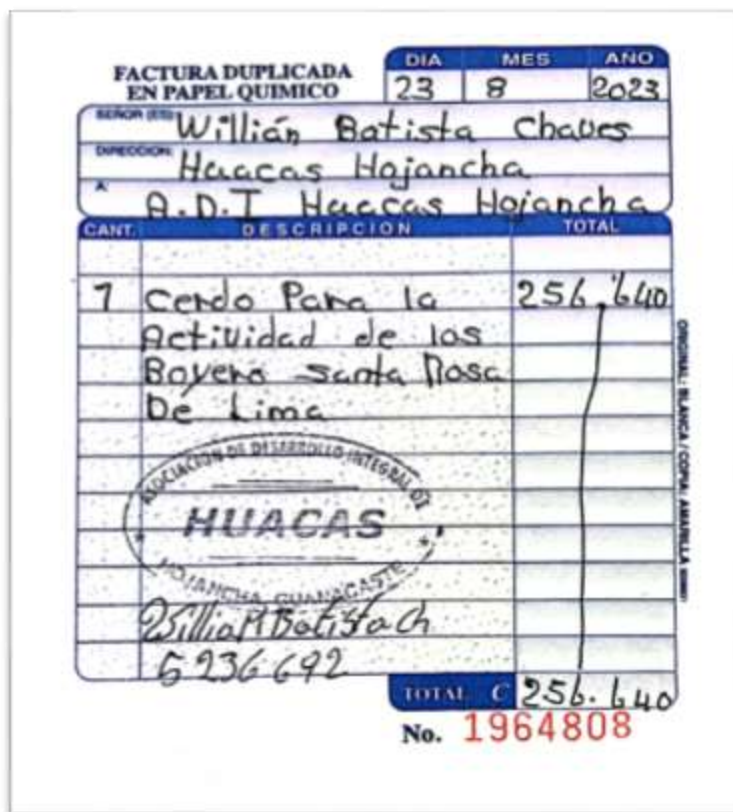 FACTURA DUPLICADA
EN PAPEL QUIMICO
DIA MES AÑO
23 8 2023
SEÑOR (ES): Willián Batista Chaves
DIRECCION: Huacas Hojancha
A: A.D.I Huacas Hojancha
CANT. DESCRIPCION TOTAL
1 Cerdo Para la 256.640
Actividad de los
Boyero Santa Rosa
De Lima
ASOCIACION DE DESARROLLO INTEGRAL DE
HUACAS
HOJANCHA GUANACASTE
Willia M Batista ch
5 236 692
TOTAL ₡ 256.640
No. 1964808
ORIGINAL: BLANCA / COPIA: AMARILLA